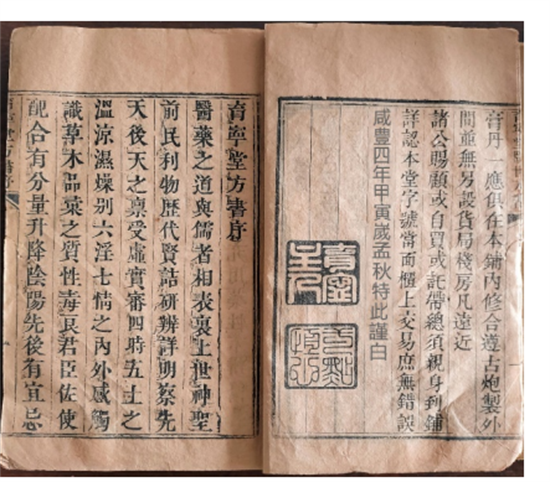 膏丹一應俱在本鋪內修合遵古炮製外
間並無另設貨局棧房凡遠近
諸公賜顧或自買或託帶總須親身到鋪
詳認本堂字號當面櫃上交易庶無錯誤
咸豐四年甲寅嵗孟秋特此謹白
育寧堂方書序
醫藥之道與儒者相表裏上世神聖
前民利物歷代賢喆研辨詳明察先
天後天之稟受虛實審四時五土之
溫涼濕燥別六淫七情之內外感觸
識草木品彙之質性毒良君臣佐使
配合有分量升降陰陽先後有宜忌